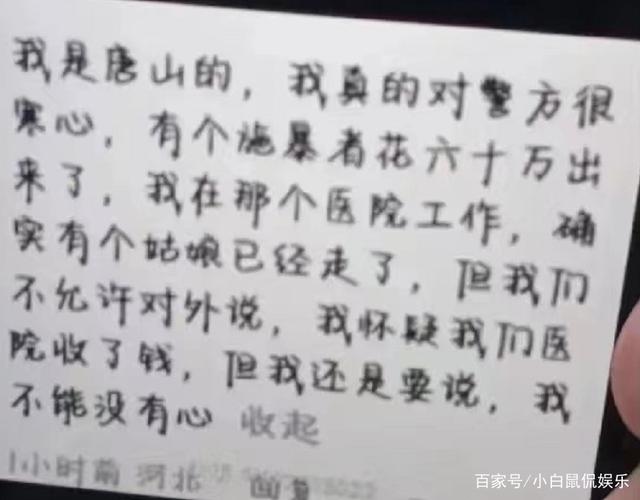 我是唐山的，我真的对警方很
寒心，有个施暴者花六十万出
来了，我在那个医院工作，确
实有个姑娘已经走了，但我们
不允许对外说，我怀疑我们医
院收了钱，但我还是要说，我
不能没有心 收起
1小时前 河北 回复
百家号/小白鼠侃娱乐